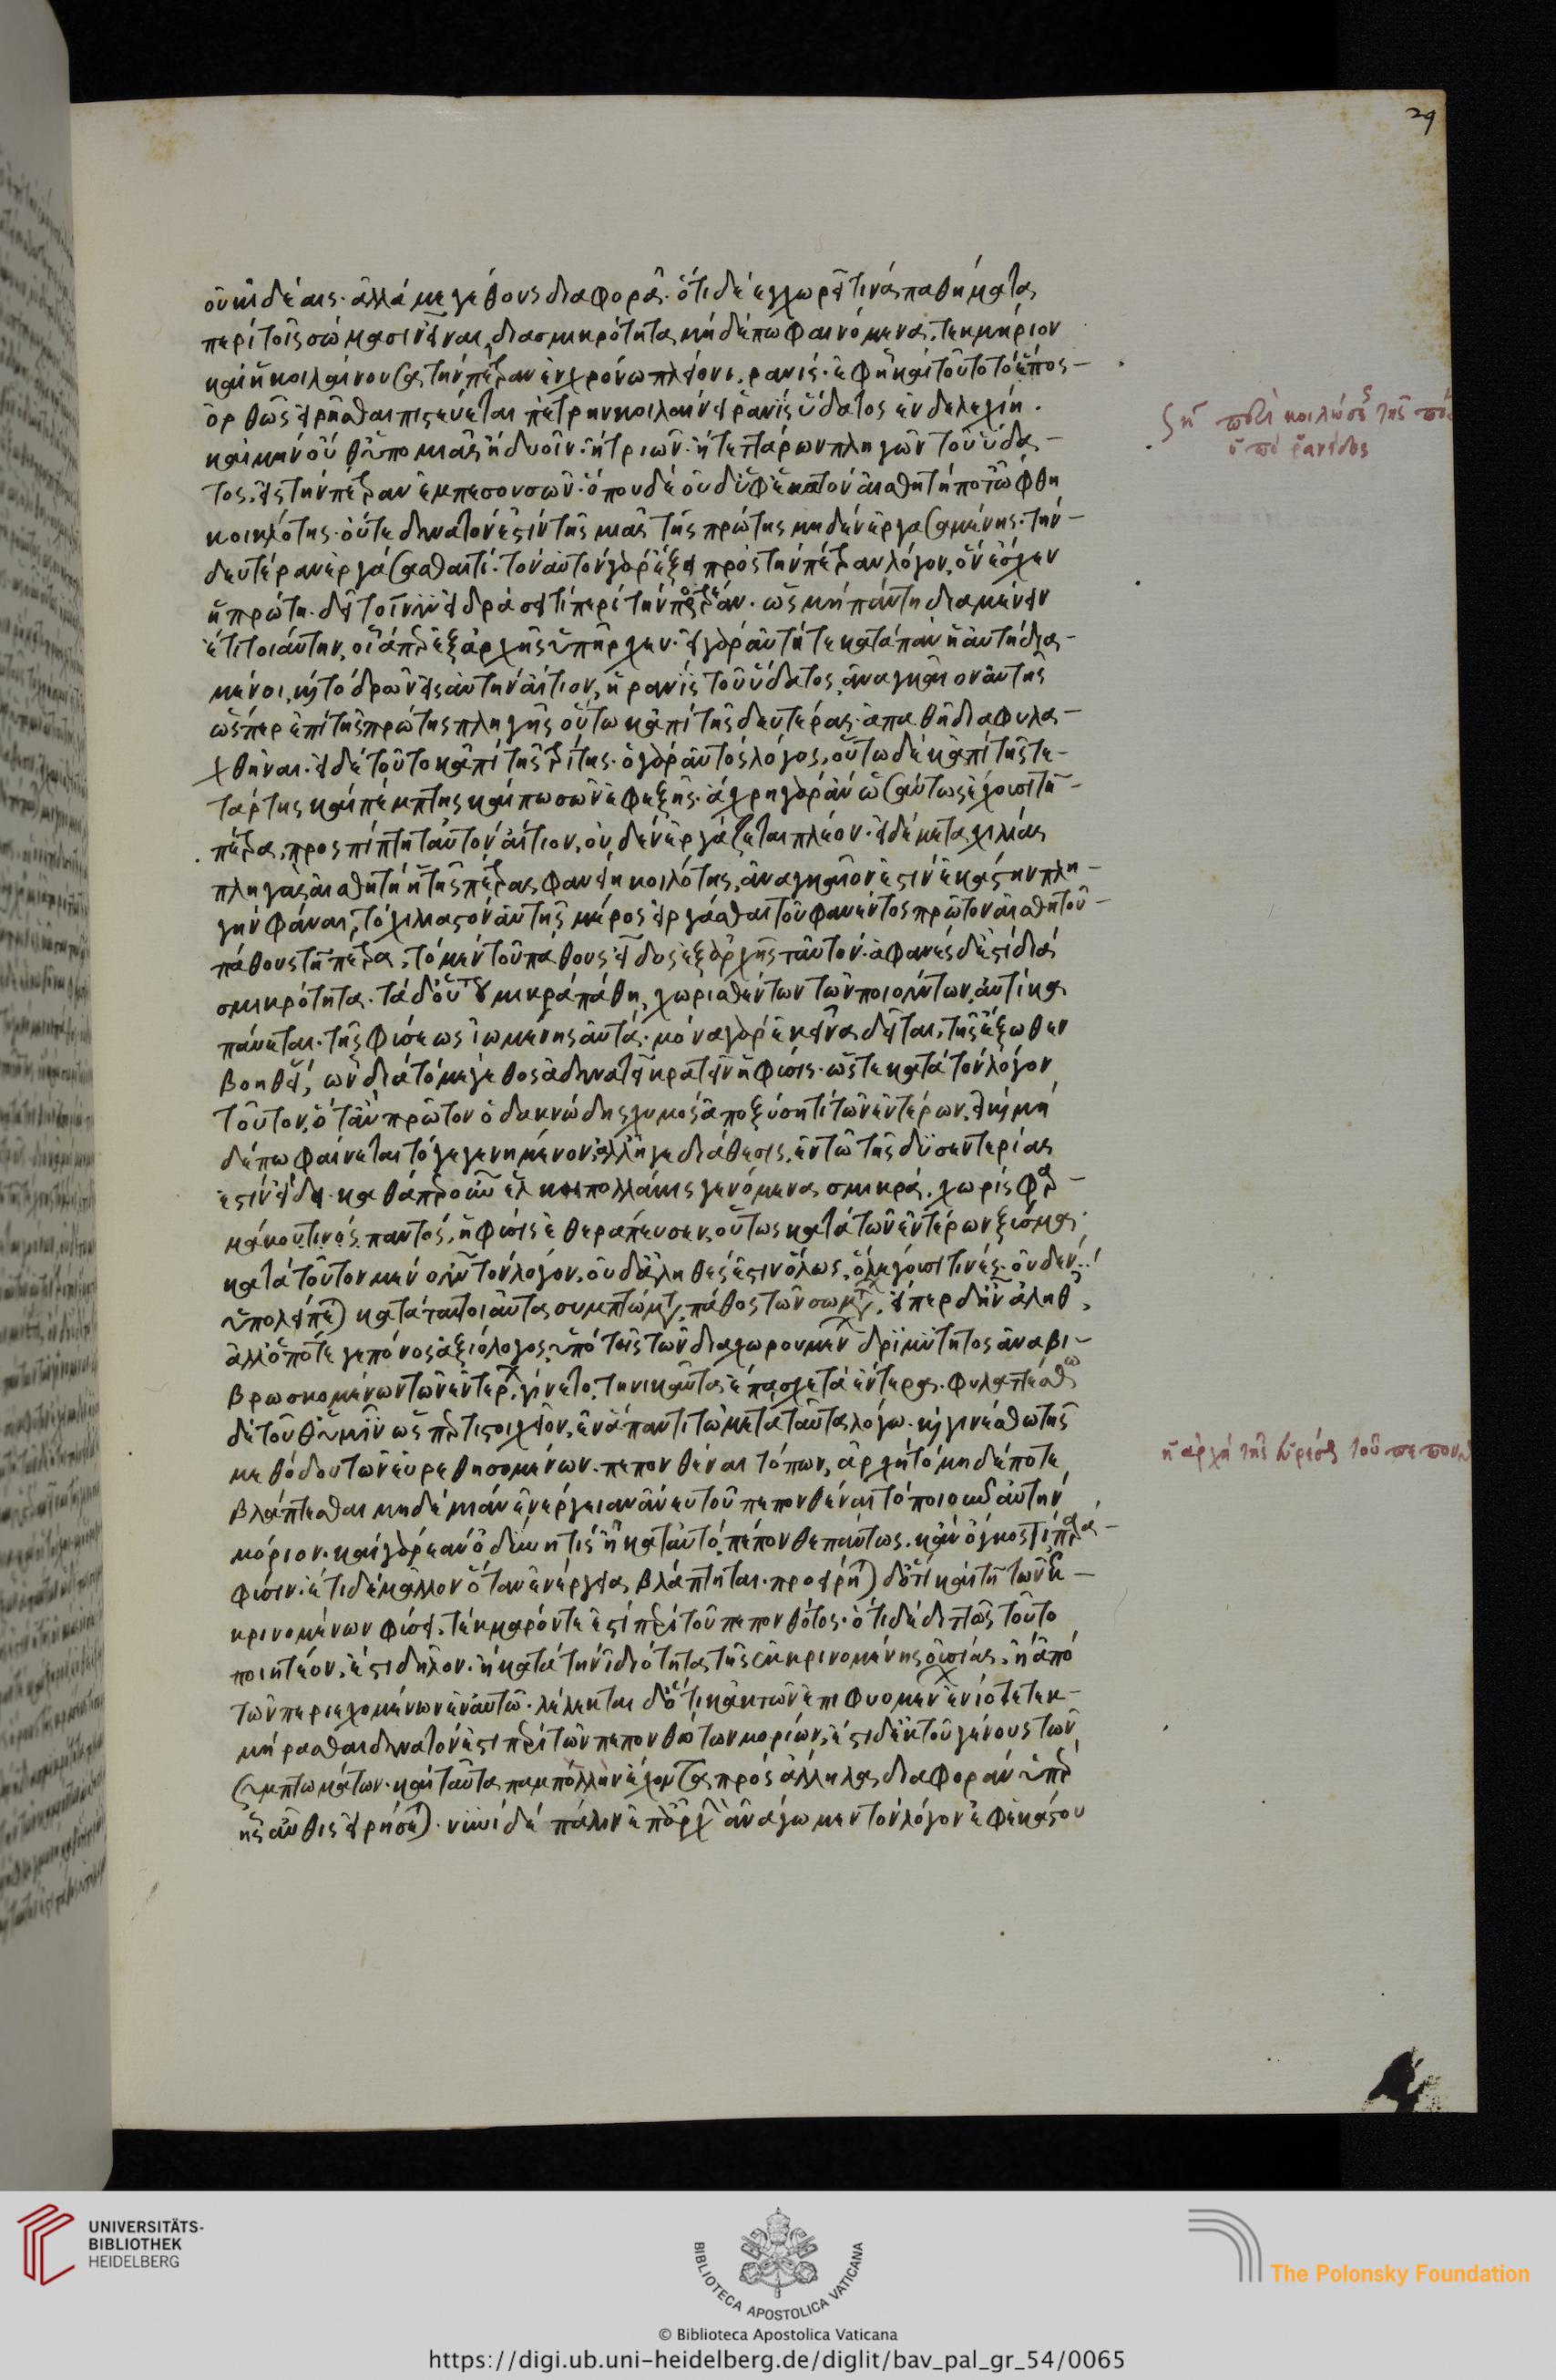 29
οὐκ ἰδέαις· ἀλλὰ μεγέθους διαφορᾷ. ὅτι δὲ ἐγχωρεῖ τινὰ παθήματα
περὶ τοῖς σώμασιν εἶναι, διὰ σμικρότητα μηδέπω φαινόμενα, τεκμήριον
καὶ ἡ κοιλαίνουσα τὴν πέτραν ἐν χρόνῳ πλείονι, ρανίς· ἐφ' ᾗ καὶ τοῦτο τὸ ἔπος
ὀρθῶς εἰρῆσθαι πιστεύεται πέτρην κοιλαίνει ῥανὶς ὕδατος ἐνδελεχίῃ.
καὶ μὴν οὔθ' ὑπὸ μιᾶς ἢ δυοῖν· ἢ τριῶν· ἢ τεττάρων πληγῶν τοῦ ὕδα-
τος, εἰς τὴν πέτραν ἐμπεσουσῶν· ὅπου δὲ οὐδ' ἐφ' ἑκατὸν αἰσθητή ποτ' ὤφθη
κοιλότης· οὔτε δυνατόν ἐστιν τῆς μιᾶς τῆς πρώτης μηδὲν ἐργασαμένης· τὴν
δευτέραν ἐργάσασθαί τι· τὸν αὐτὸν γὰρ ἕξει πρὸς τὴν πέτραν λόγον, ὃν ἔσχεν
ἡ πρώτη. δεῖ τοίνυν δράσει τι περὶ τὴν πέτραν. ὡς μὴ πάντῃ διαμένειν
ἔτι τοιαύτην, οἵα περ ἐξ ἀρχῆς ὑπῆρχεν· εἰ γὰρ αὐτή τε κατὰ πᾶν ἡ αὐτὴ δια-
μένοι, καὶ τὸ δρῶν εἰς αὐτὴν αἴτιον, ἡ ρανὶς τοῦ ὕδατος, ἀναγκαῖον αὐτῆς
ὥσπερ ἐπὶ τῆς πρώτης πληγῆς οὕτω κἀπὶ τῆς δευτέρας· ἀπαθῆ διαφυλα-
χθῆναι· εἰ δὲ τοῦτο κἀπὶ τῆς τρίτης· ὁ γὰρ αὐτὸς λόγος, οὕτω δὲ κἀπὶ τῆς τε-
τάρτης καὶ πέμπτης καὶ πασῶν ἐφεξῆς· ἄχρι γὰρ ἂν ὡσαύτως ἐχούσῃ τῇ
πέτρᾳ, προσπίπτῃ ταὐτὸν αἴτιον, οὐδὲν ἐργάζεται πλέον· εἰ δὲ μετὰ χιλίας
πληγὰς αἰσθητὴ τῆς πέτρας φανείη κοιλότης, ἀναγκαῖον ἐστὶν ἑκάστην πλη-
γὴν φάναι, τὸ χιλιαστὸν αὐτῆς μέρος εἰργάσθαι τοῦ φανέντος πρῶτον αἰσθητοῦ
πάθους τῇ πέτρᾳ, τὸ μὲν τοῦ πάθους εἶδος ἐξ ἀρχῆς ταὐτόν· ἀφανὲς δέ ἐστι διὰ
σμικρότητα. τὰ δ' οὕτω μικρὰ πάθη, χωρισθέντων τῶν ποιούντων, αὐτίκα
παύεται. τῆς φύσεως ἰωμένης αὐτά· μόνα γὰρ ἐκεῖνα δεῖται, τῆς ἔξωθεν
βοηθεί, ὧν διὰ τὸ μέγεθος ἀδυνατεῖ κρατεῖν ἡ φύσις· ὥστε κατὰ τὸν λόγον
τοῦτον, ὅταν πρῶτον ὁ δακνώδης χυμὸς ἀποξύσῃ τι τῶν ἐντέρων, κἂν μὴ
δέπω φαίνεται τὸ γεγενημένον, ἀλλ' ἥ γε διάθεσις, ἐν τῷ τῆς δυσεντερίας
ἐστὶν εἴδει· καθάπερ οὖν ἕλκη πολλάκις γενόμενα σμικρά, χωρὶς φαρ-
μάκου τινὸς παντός, ἡ φύσις ἐθεράπευσεν, οὕτως κατὰ τῶν ἐντέρων ξύσμα·
κατὰ τοῦτον μὲν οὖν τὸν λόγον, οὐδ' ἀληθές ἐστιν ὅλως, ὃ λέγουσί τινες· οὐδὲν
ὑπολείπεται κατὰ τὰ τοιαῦτα συμπτώματα, πάθος τῶν σωμάτων, εἴπερ δ' ἦν ἀληθ,
ἀλλ' ὁπότε γε πόνος ἀξιόλογος ὑπὸ τῆς τῶν διαχωρουμένων δριμύτητος ἀναβι-
βρωσκομένων τῶν ἐντέρων, γίνετο, τηνικαῦτα ἔπασχε τὰ ἔντερα. φυλαττέσθω
δὲ τοῦθ' ἡμῖν ὥσπερ τι στοιχεῖον, ἐν ἅπαντι τῷ μετὰ ταῦτα λόγῳ. καὶ γινέσθω τῆς
μεθόδου τῶν εὑρεθησομένων· πεπονθέναι τόπων, ἀρχὴ τὸ μηδέποτε
βλάπτεσθαι μηδεμίαν ἐνέργειαν ἄνευ τοῦ πεπονθέναι τὸ ποιοῦν αὐτὴν
μόριον. καὶ γὰρ ἐὰν ὀδύνη τις ᾖ κατ' αὐτό, πέπονθε πάντως. κἂν ὄγκος τις παρὰ
φύσιν· ἔτι δὲ μᾶλλον ὅταν ἐνέργεια βλάπτηται. προείρηται δ' ὅτι καὶ τῇ τῶν ἐκ-
κρινομένων φύσει, τεκμαρτέον τέ ἐστι περὶ τοῦ πεπονθότος· ὅτι δὲ διττῶς τοῦτο
ποιητέον, ἔστι δῆλον. ἢ κατὰ τὴν ἰδιότητα τῆς ἐκκρινομένης οὐσίας, ἢ ἀπὸ
τῶν περιεχομένων ἐν αὐτῷ. λέλεκται δ' ὅτι κἀκ τῶν ἐπιφυομένων ἐνίοτε τεκ-
μήρασθαι δυνατόν ἐστι περὶ τῶν πεπονθότων μορίων, ἔστι δ' ἐκ τοῦ γένους τῶν
συμπτωμάτων. καὶ ταῦτα παμπόλλην ἔχοντα πρὸς ἄλληλα διαφορὰν ὑπὲρ
ἧς αὖθις εἰρήσεται. νυνὶ δὲ πάλιν ἐπ' ἀρχὴν ἀνάγωμεν τὸν λόγον ἐφ' ἑκάστου
ὑπὸ ῥανίδος
ἡ ἀρχὴ τῆς εὑρέσεως τοῦ πεπον
UNIVERSITÄTS-
BIBLIOTHEK
HEIDELBERG
BIBLIOTECA APOSTOLICA VATICANA
The Polonsky Foundation
© Biblioteca Apostolica Vaticana
https://digi.ub.uni-heidelberg.de/diglit/bav_pal_gr_54/0065